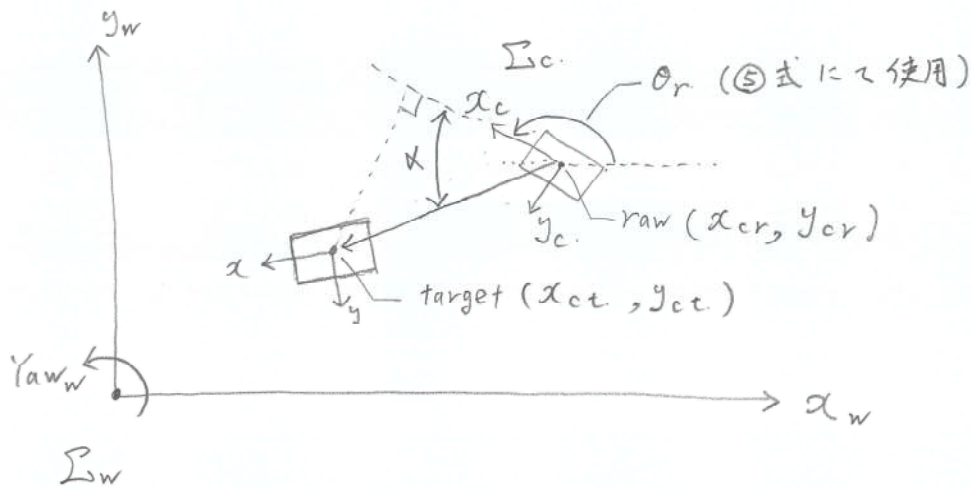 y_w
Σc.
θr (⑤式にて使用)
x_c
α
y_c.
raw (x_cr, y_cr)
x
y
target (x_ct., y_ct.)
Yaw_w
x_w
Σw